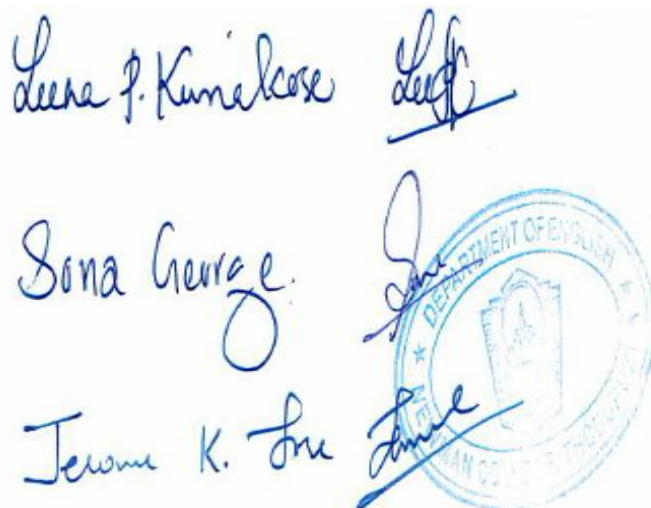 Leena P. Kuriakose
Sona George.
Jerome K. Jose
DEPARTMENT OF ENGLISH
NEWMAN COLLEGE, THODUPUZHA